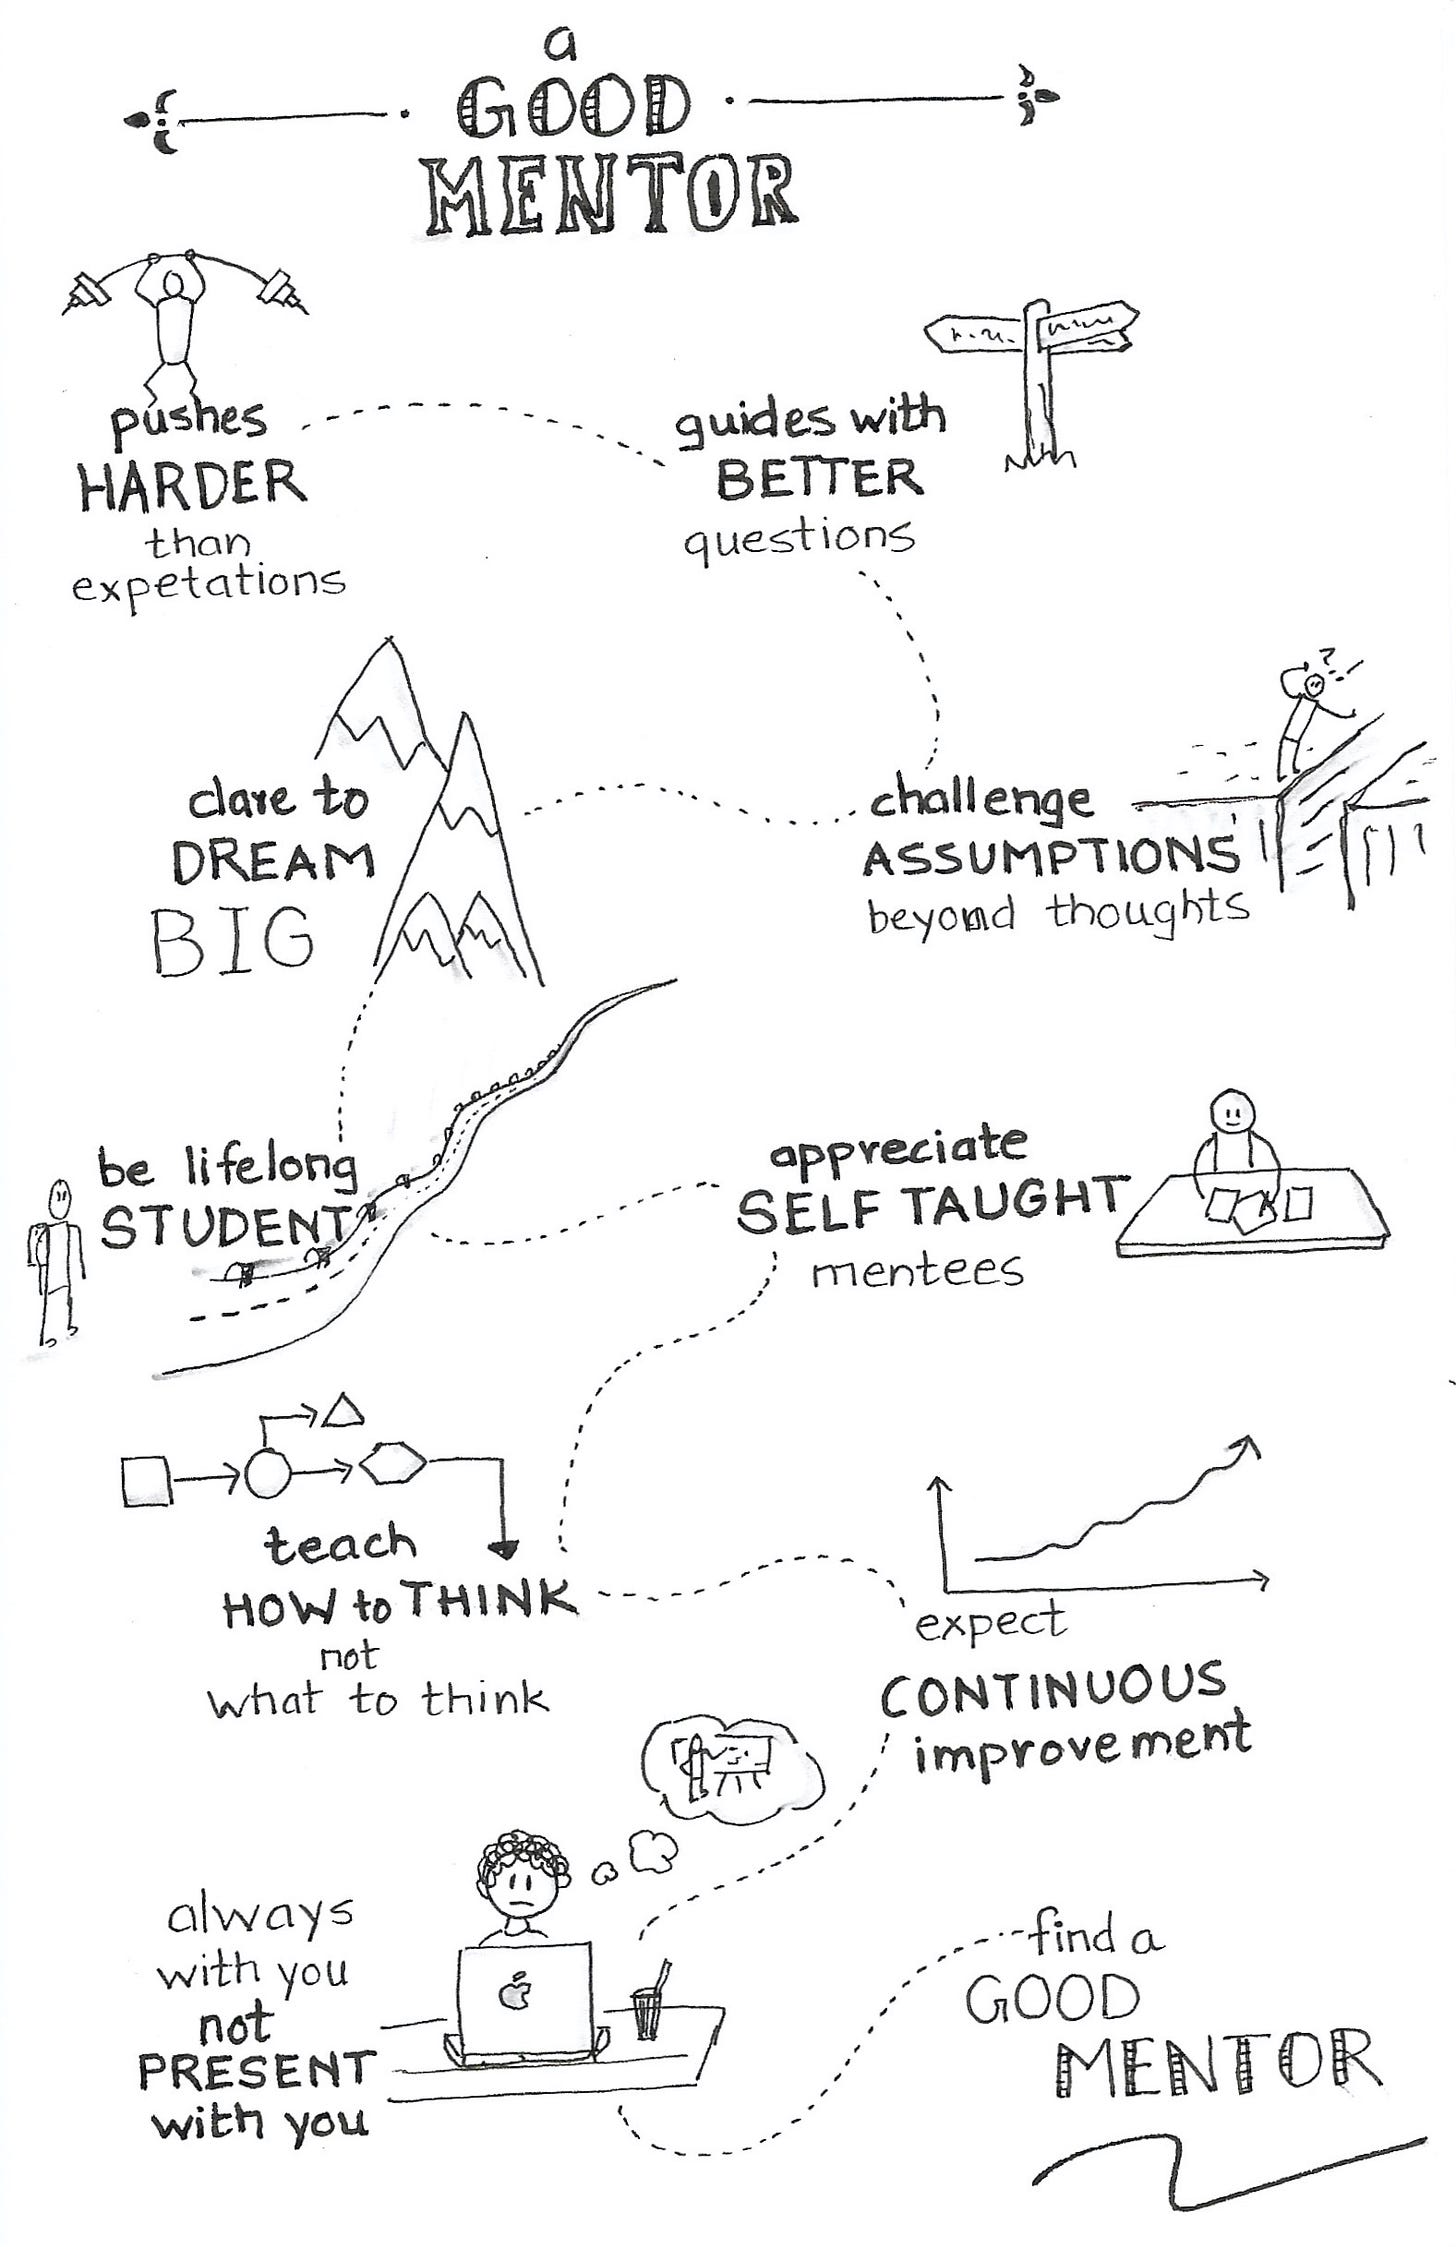 a
GOOD
MENTOR
pushes
HARDER
than
expetations
guides with
BETTER
questions
challenge
ASSUMPTIONS
beyond thoughts
?
dare to
DREAM
BIG
be lifelong
STUDENT
appreciate
SELF TAUGHT
mentees
teach
HOW to THINK
not
what to think
expect
CONTINUOUS
improvement
always
with you
not
PRESENT
with you
find a
GOOD
MENTOR